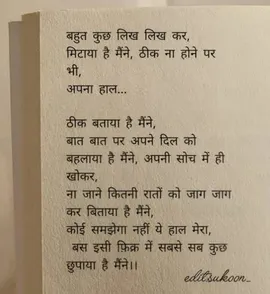 बहुत कुछ लिख लिख कर,
मिटाया है मैंने, ठीक ना होने पर
भी,
अपना हाल...
ठीक बताया है मैंने,
बात बात पर अपने दिल को
बहलाया है मैंने, अपनी सोच में ही
खोकर,
ना जाने कितनी रातों को जाग जाग
कर बिताया है मैंने,
कोई समझेगा नहीं ये हाल मेरा,
बस इसी फ़िक्र में सबसे सब कुछ
छुपाया है मैंने।।
editsukoon..